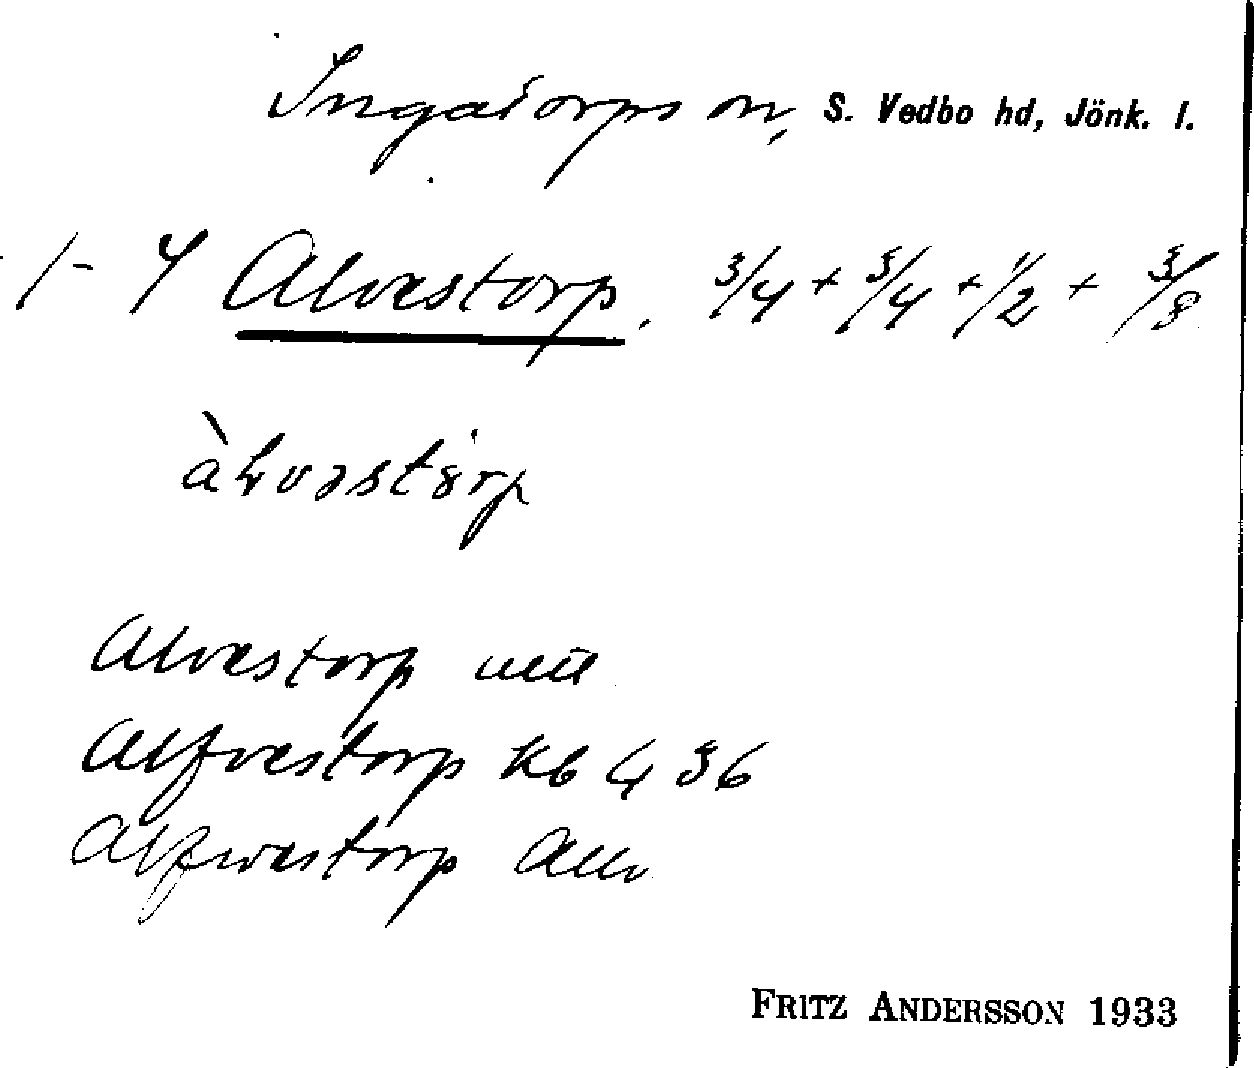 Ingatorps sn, S. Vedbo hd, Jönk. l.
1-4 Alvestorp. 3/4 + 3/4 + 1/2 + 3/8
Alvestorp
Alfvestorp kb 4 36
Alfwestorp
FRITZ ANDERSSON 1933